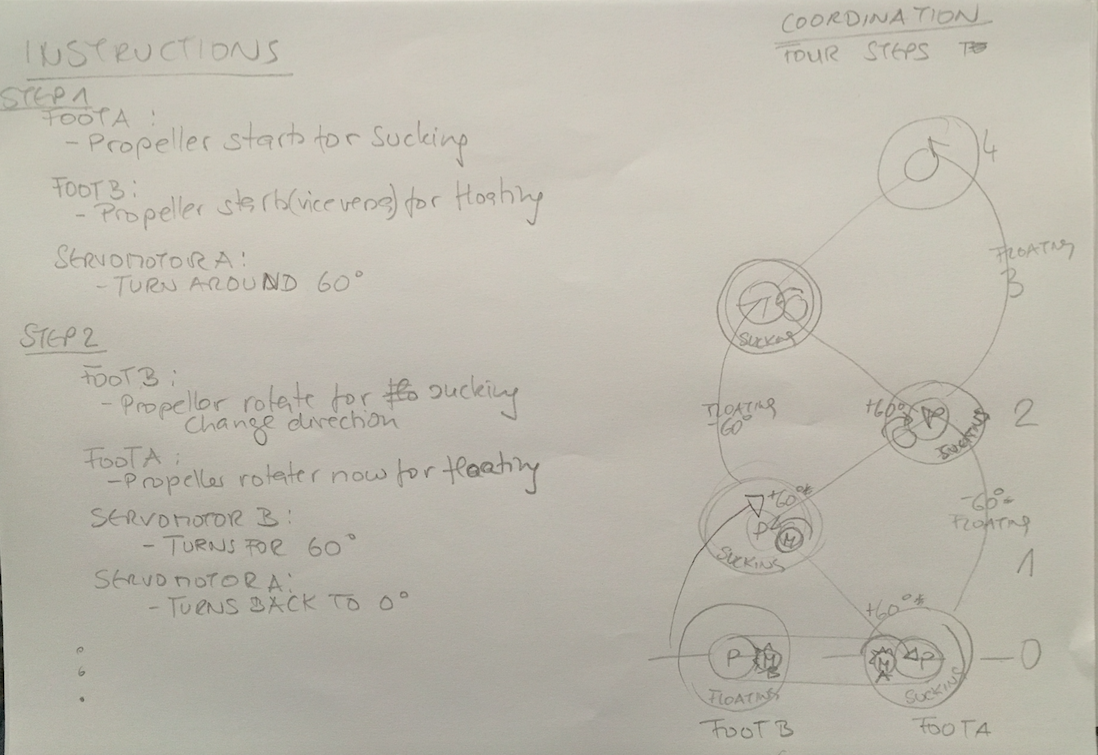 INSTRUCTIONS
STEP 1
FOOT A :
- Propeller starts for sucking
FOOT B :
- Propeller starts (vice versa) for floating
SERVOMOTOR A :
- TURN AROUND 60°
STEP 2
FOOT B :
- Propeller rotate for sucking
change direction
FOOT A :
- Propeller rotater now for floating
SERVOMOTOR B :
- TURNS FOR 60°
SERVOMOTOR A :
- TURNS BACK TO 0°
COORDINATION
FOUR STEPS TO
4
FLOATING
3
SUCKING
FLOATING
-60°
+60°
P
SUCKING
2
+60°*
P
M
SUCKING
-60°
FLOATING
1
+60°*
P
M
B
M
A
P
0
FLOATING
SUCKING
FOOT B
FOOT A